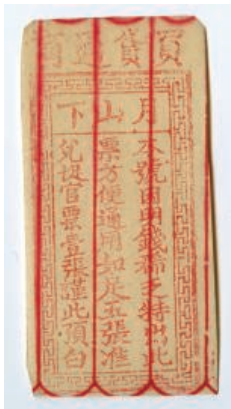 買貨通
月山下
本號因明錢稀乏特出此
票方便通用如足五張准
兌換官票壹張謹此預白